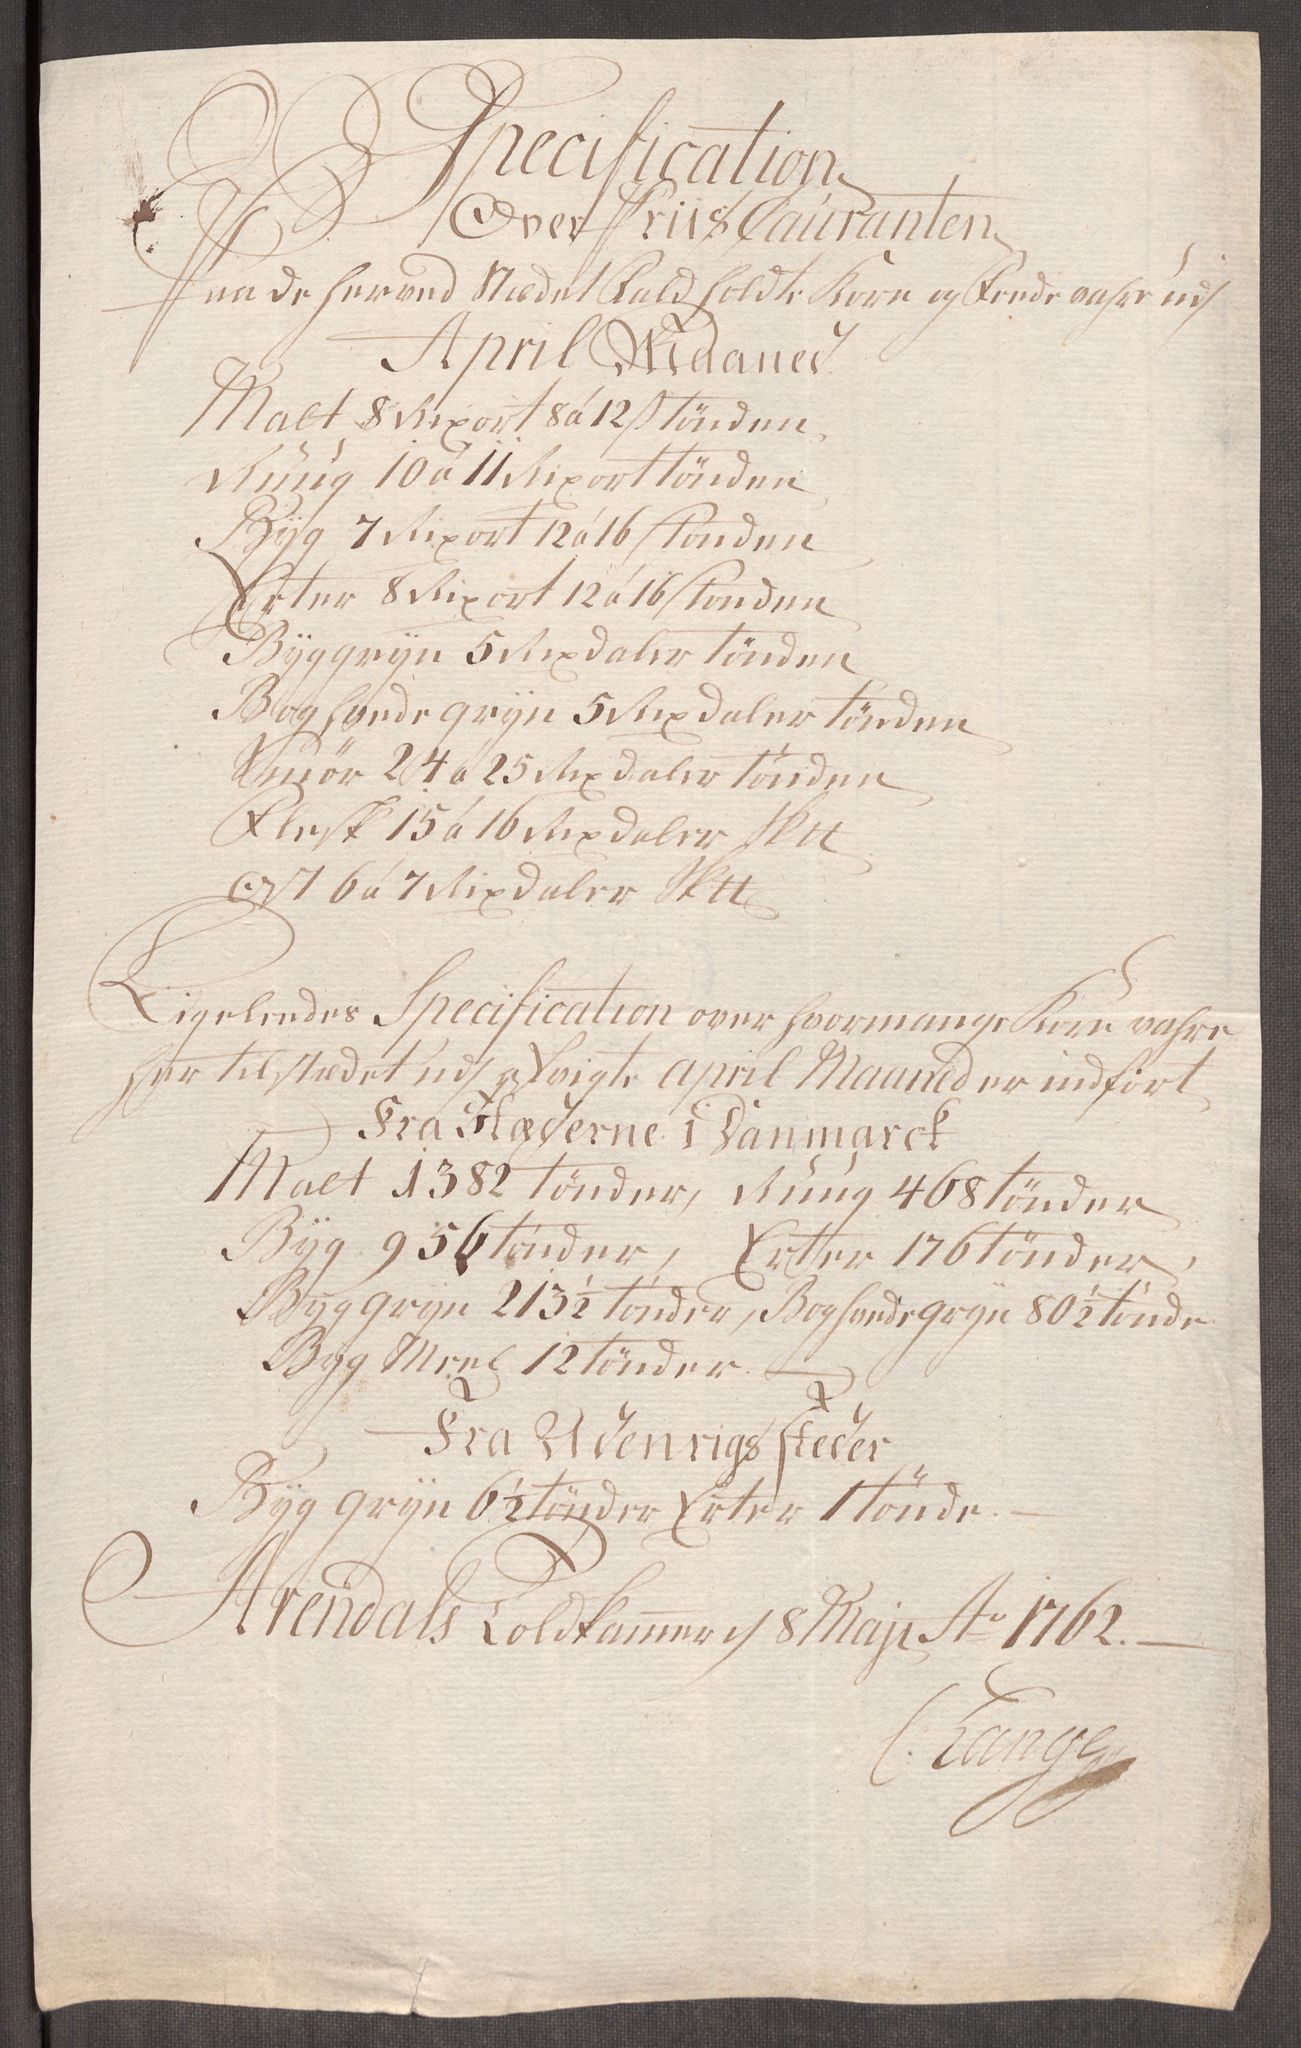 Specification
Over Priis Cauranten
Paa de herved Stædet fald holdte Korn og Fede vahre udj
April Maaned
Malt 8 Rixort 8 á 12 s tönden
Rúúg 10 á 11 Rixort tönden
Byg 7 Rixort 12 á 16 s tonden
Erter 8 Rixort 12 á 16 s tonden
Byggryn 5 Rixdaler tönden
Boghvede gryn 5 Rixdaler tönden
Smör 24 a 25 Rixdaler tönden
Flesk 15 á 16 Rixdaler Sktt
ost 6 á 7 Rixdaler Sktt
Ligeleedes Specification over hvormange Korn vahre
her til stædet udj April Maaned er indfört
Fra Stæderne i Danmarck
Malt 1382 tönder, Rúúg 468 tönder
Byg 956 tönder, Erter 176 tönder,
Byg gryn 213½ tönder, Boghvede gryn 80½ tönde
Byg Meel 12 tönder
Fra Udenrigs steder
Byg gryn 6½ tönder Erter 1 tönde
Arendals Toldkammer d 8 Maji Ao 1762.
C. Lange